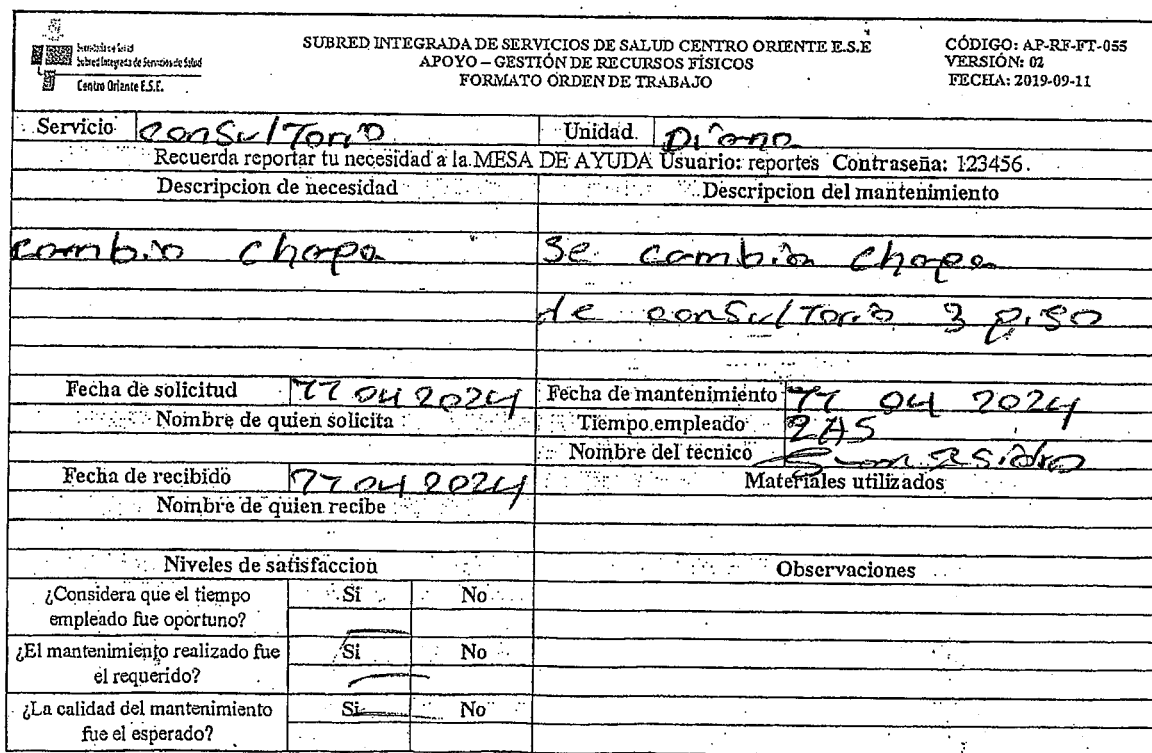 Secretaría de Salud
Subred Integrada de Servicios de Salud
Centro Oriente E.S.E.
SUBRED INTEGRADA DE SERVICIOS DE SALUD CENTRO ORIENTE E.S.E
APOYO – GESTIÓN DE RECURSOS FÍSICOS
FORMATO ÓRDEN DE TRABAJO
CÓDIGO: AP-RF-FT-055
VERSIÓN: 02
FECHA: 2019-09-11
Servicio consultorio Unidad Diana
Recuerda reportar tu necesidad a la MESA DE AYUDA Usuario: reportes Contraseña: 123456.
Descripcion de necesidad Descripcion del mantenimiento
cambio chapa se cambia chapa
de consultorio 3 piso
Fecha de solicitud 11 04 2024 Fecha de mantenimiento 11 04 2024
Nombre de quien solicita Tiempo empleado
Nombre del técnico
Fecha de recibido 11 04 2024 Materiales utilizados
Nombre de quien recibe
Niveles de satisfaccion Observaciones
¿Considera que el tiempo empleado fue oportuno? Si No
¿El mantenimiento realizado fue el requerido? Si No
¿La calidad del mantenimiento fue el esperado? Si No